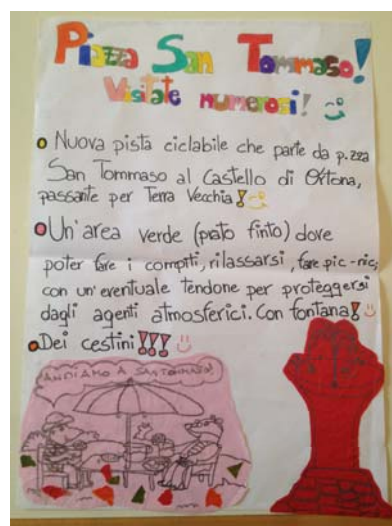 Piazza San Tommaso!
Visitate numerosi!
Nuova pista ciclabile che parte da p.zza
San Tommaso al Castello di Ortona,
passante per Terra Vecchia!
Un'area verde (prato finto) dove
poter fare i compiti, rilassarsi, fare pic-nic,
con un'eventuale tendone per proteggersi
dagli agenti atmosferici. Con fontana!
Dei cestini!!!
ANDIAMO A SAN TOMMASO!